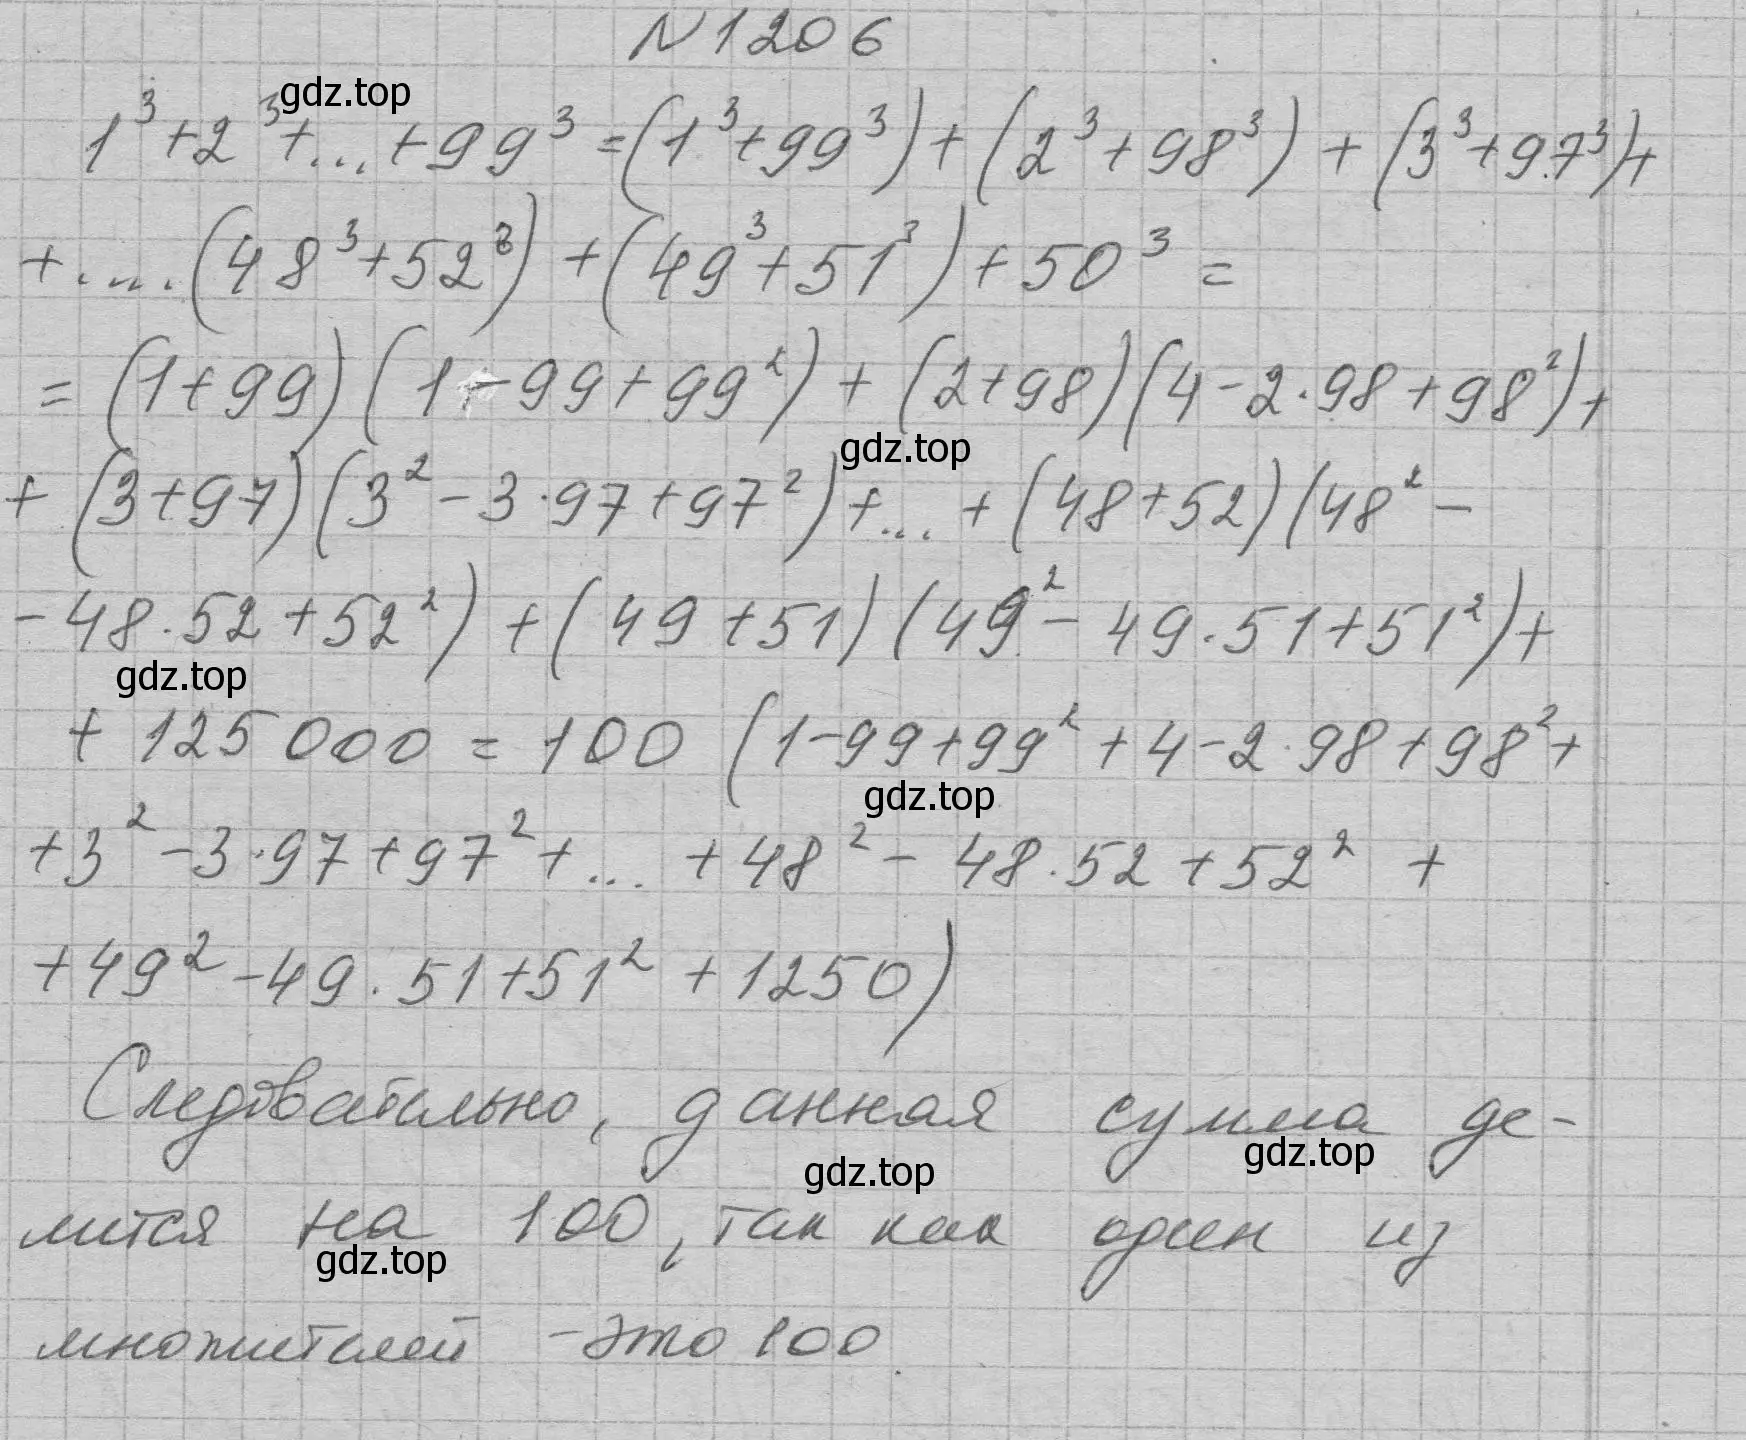 N 1206
gdz.top
1³+2³+...+99³=(1³+99³)+(2³+98³)+(3³+97³)+
+....(48³+52³)+(49³+51³)+50³=
=(1+99)(1-99+99²)+(2+98)(4-2·98+98²)+
gdz.top
+(3+97)(3²-3·97+97²)+...+(48+52)(48²-
-48·52+52²)+(49+51)(49²-49·51+51²)+
gdz.top
+125000=100(1-99+99²+4-2·98+98²+
gdz.top
+3²-3·97+97²+...+48²-48·52+52²+
+49²-49·51+51²+1250)
Следовательно, данная сумма де-
gdz.top
gdz.top
лится на 100, так как один из
gdz.top
множителей - это 100.